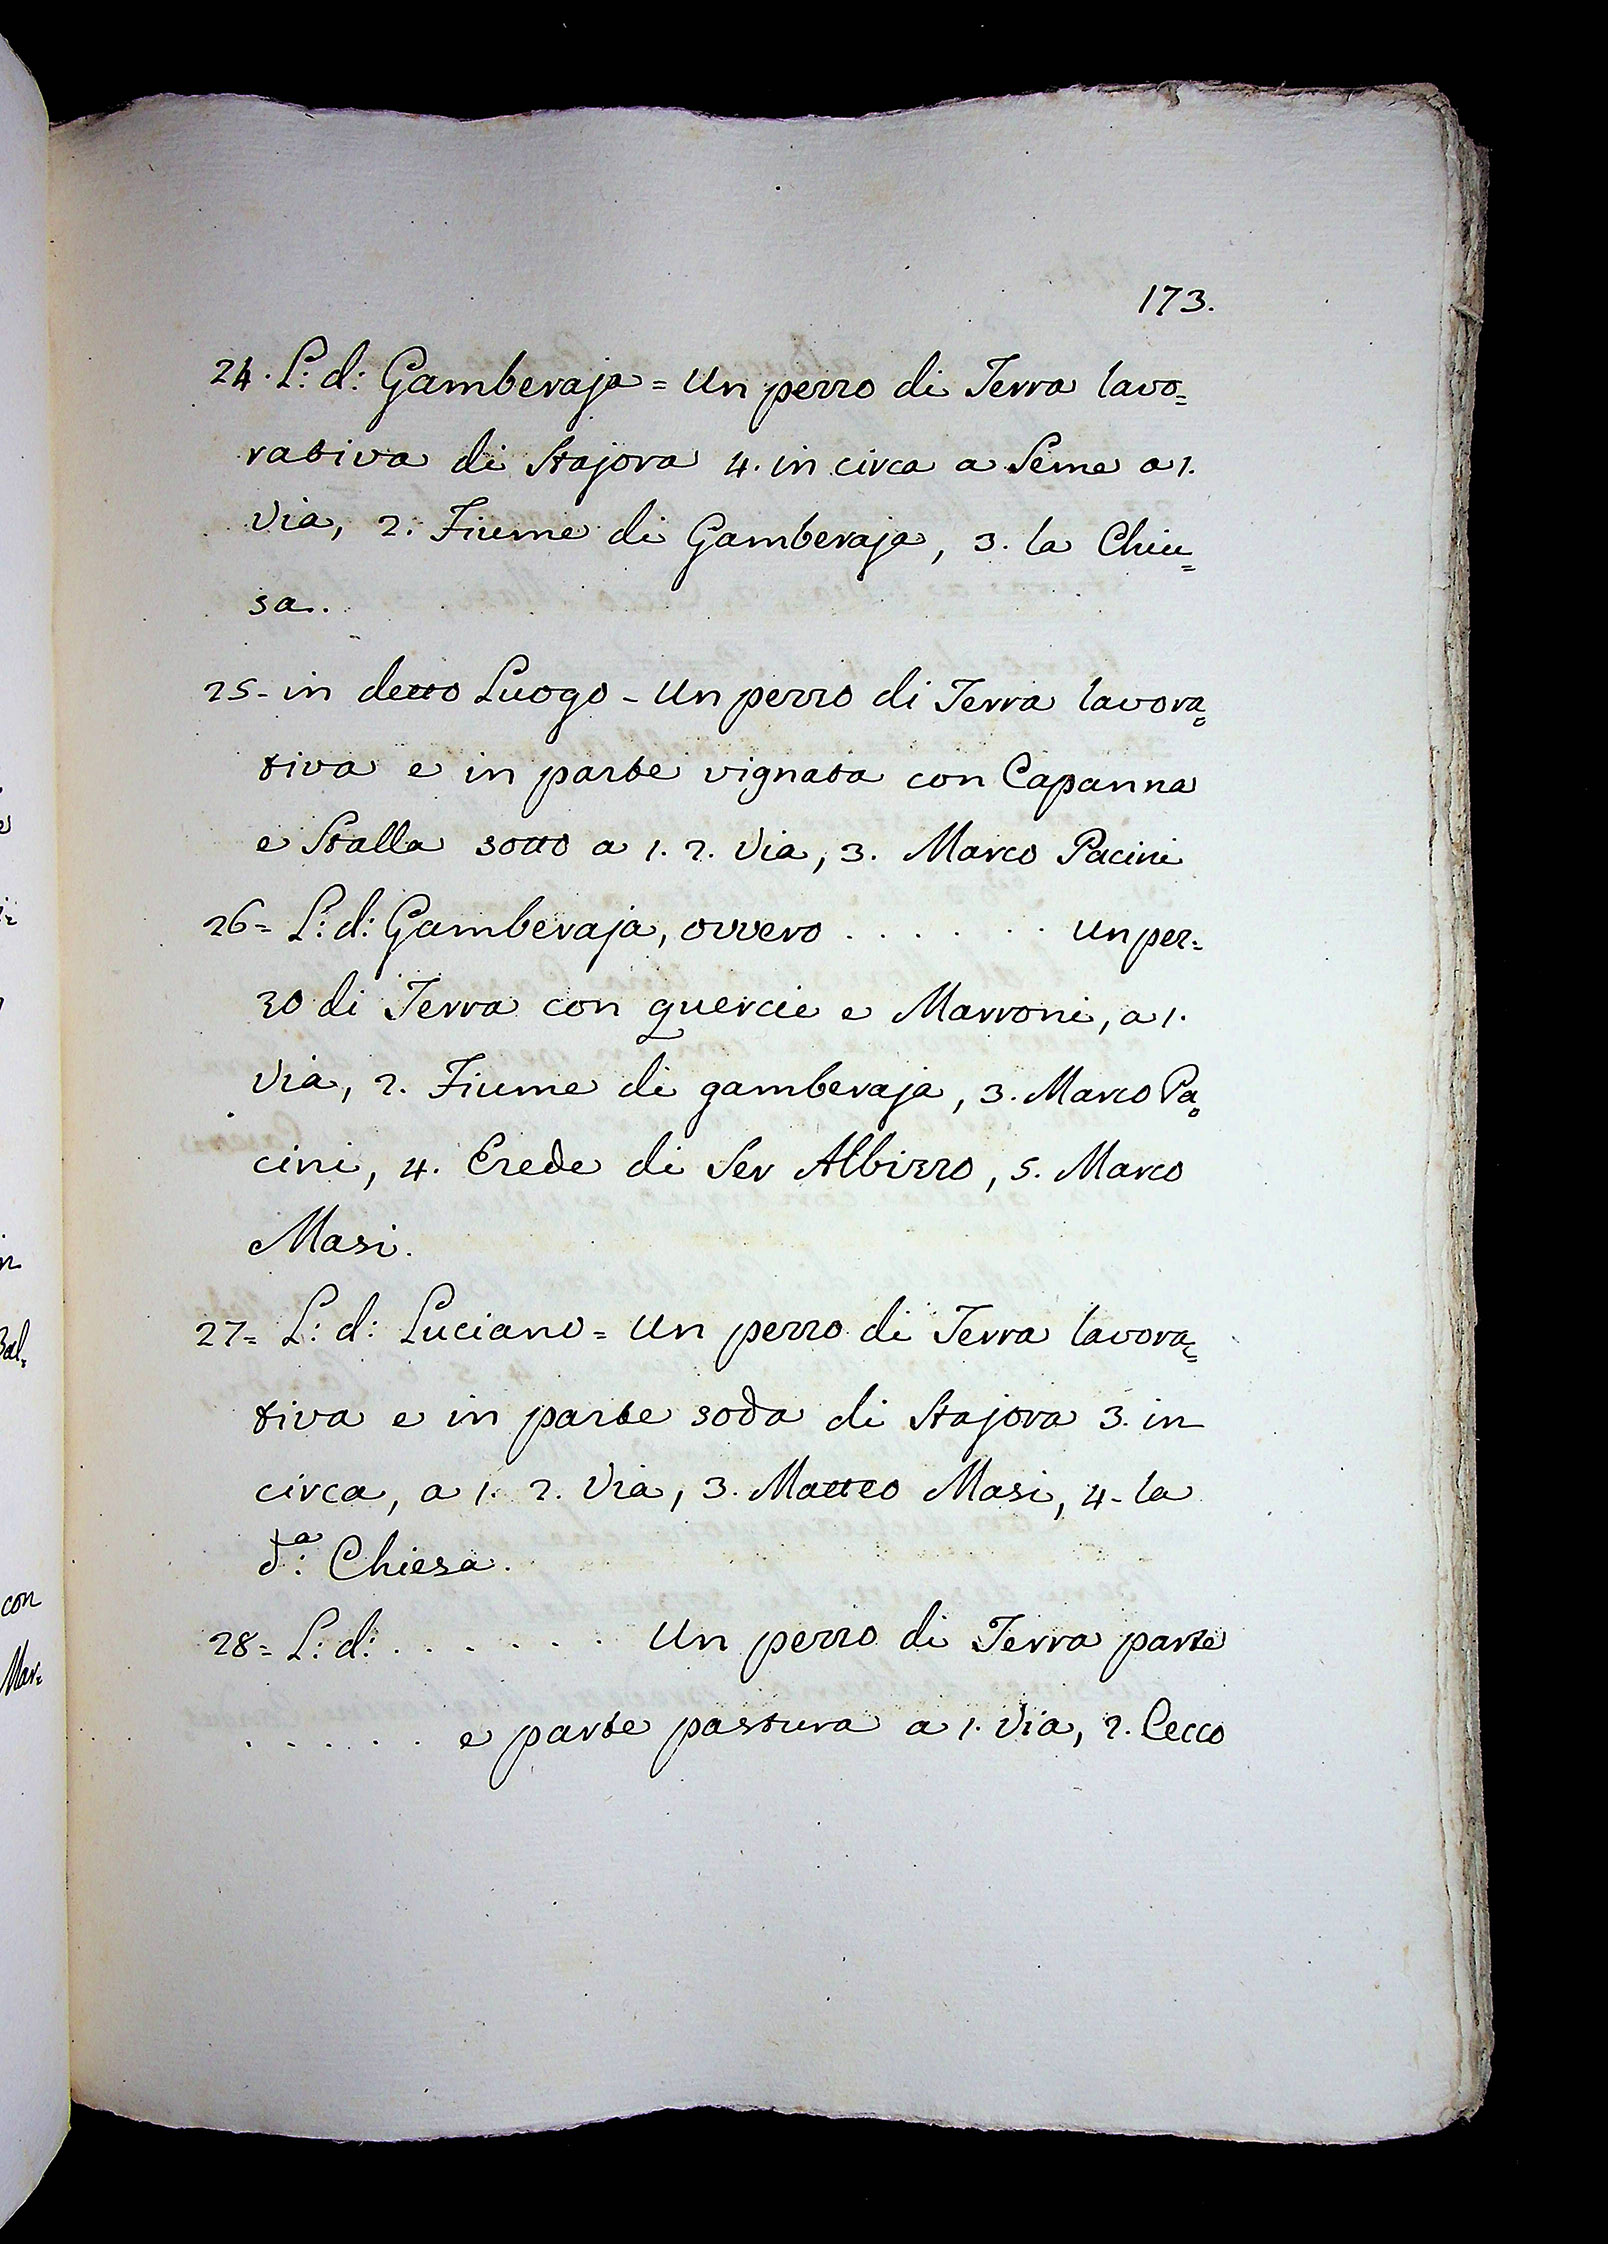 173.
24. L: d: Gamberaja = Un pezzo di Terra lavo=
rativa di Stajora 4. in circa a Seme a 1.
Via, 2. Fiume di Gamberaja, 3. la Chiu=
sa.
25- in detto Luogo - Un pezzo di Terra lavora=
tiva e in parte vignata con Capanna
e Stalla sotto a 1. 2. Via, 3. Marco Pacini
26= L: d: Gamberaja, ovvero . . . . . . Un pez=
zo di Terra con quercie e Marroni, a 1.
Via, 2. Fiume di gamberaja, 3. Marco Pa=
cini, 4. Erede di Ser Albizzo, 5. Marco
Masi.
27= L: d: Luciano = Un pezzo di Terra lavora=
tiva e in parte soda di Stajora 3. in
circa, a 1. 2. Via, 3. Matteo Masi, 4- la
d.ª Chiesa.
28= L: d: . . . . . . Un pezzo di Terra parte
. . . . . . e parte pastura a 1. Via, 2. Cecco
in
Bal=
con
Mar=